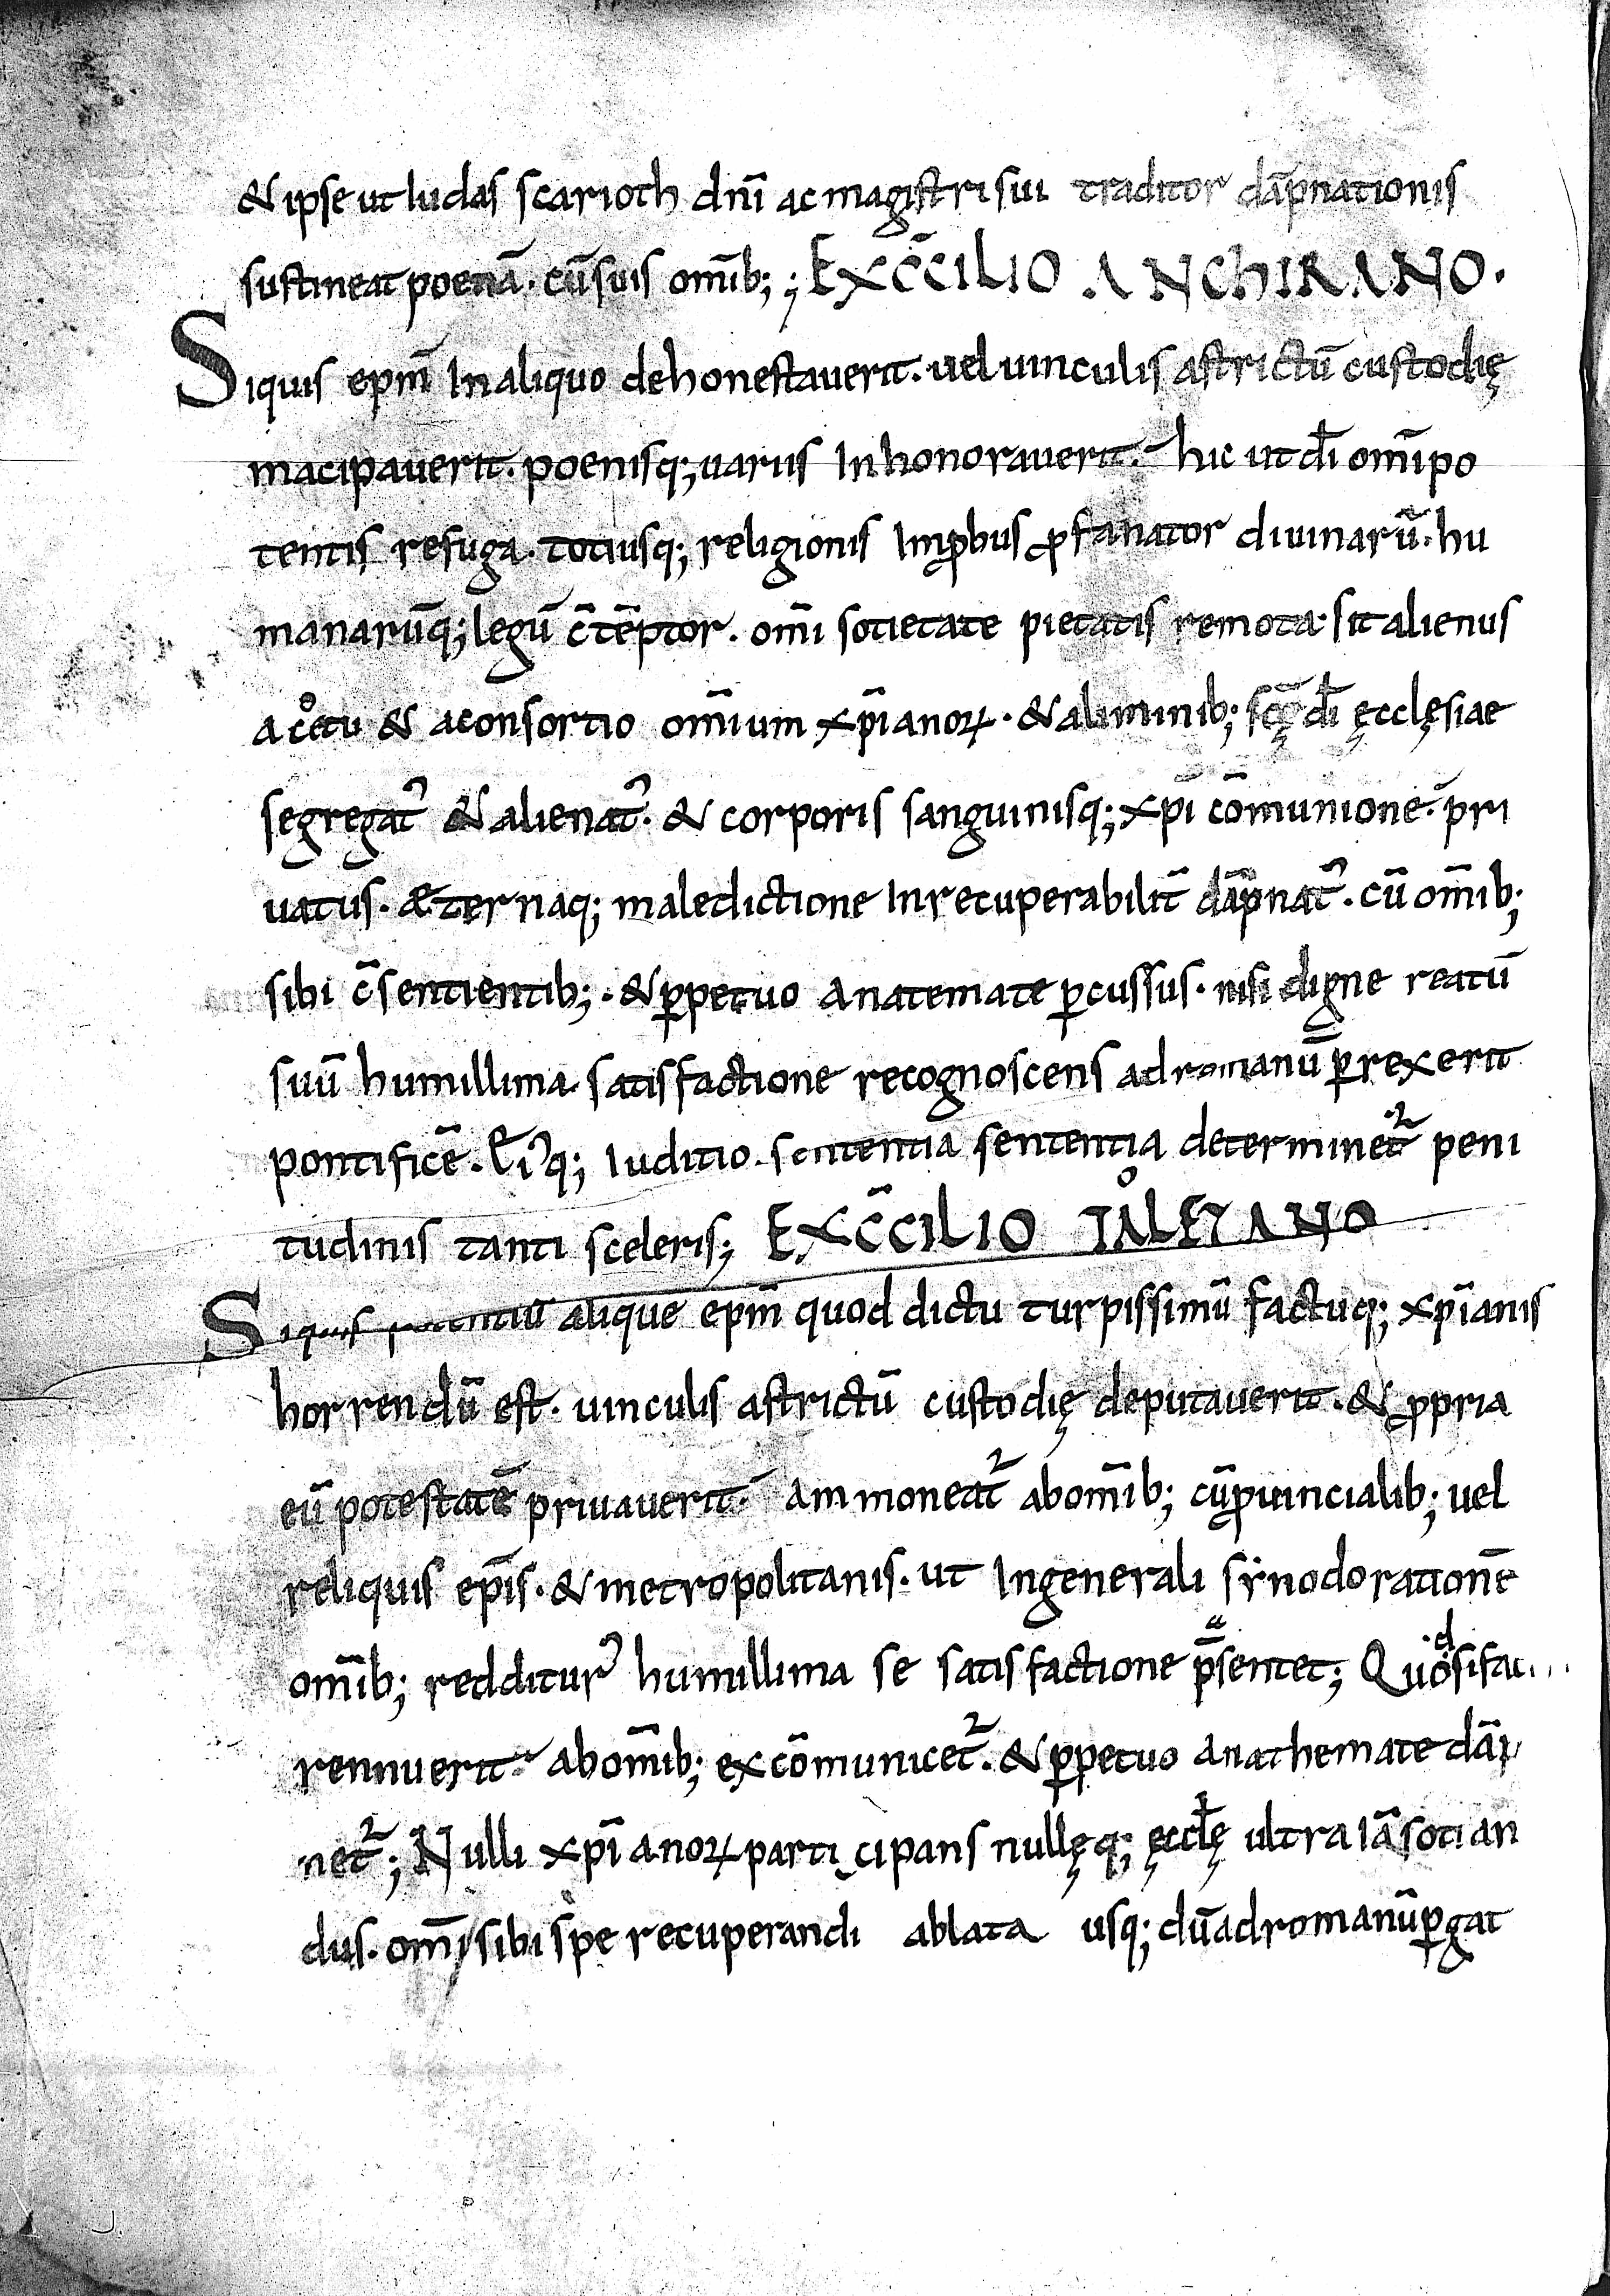 & ipse ut Iudas scarioth dn̄i ac magistri sui traditor dāpnationis
sustineat poenā. cū suis om̄ib; ; EXC̄CILIO ANCHIRANO.
Siquis epm̄ In aliquo dehonestauerit. uel uinculis astrictū custodię
macipauerit. poenisq; uariis Inhonorauerit. hic ut dī om̄ipo
tentis refuga. totiusq; religionis Inꝓbus ꝓfanator diuinarū. hu
manarūq; legū c̄tēptor. om̄i sotietate pietatis remota sit alienus
a coetu & aconsortio om̄ium xp̄ianoꝝ. & aliminib; scę̄ dī ęcclęsiae
segregat᾿ & alienat᾿. & corporis sanguinisq; xp̄i cōmunione. pri
uatus. æternaq; maledictione Inrecuperabilit̄ dāpnat᾿. cū om̄ib;
sibi c̄sentientib;. & ꝑpetuo anatemate ꝑcussus. nisi digne reatū
suū humillima satisfactione recognoscens ad romanū ꝑrexerit
pontificē. Ei᾿q; Iuditio sententia sententia determinet᷑ peni
tudinis tanti sceleris; EXC̄CILIO TALETANO
Siquis alique epm̄ quod dictu turpissimū factuq; xp̄ianis
horrendū est. uinculis astrictū custodię deputauerit. & ꝓpria
eū potestatē priuauerit. Ammoneat᷑ abom̄ib; cūꝓuincialib; uel
reliquis ep̄is. & metropolitanis. ut Ingenerali sẏnodo rationē
om̄ib; redditur᾿ humillima se satisfactione p̄sentet; Quodsi
rennuerit abom̄ib; excōmunicet᷑. & ꝑpetuo anathemate dāp
net᷑; Nulli xp̄ianoꝝ participans nullęq; ęcclę ultra Iā sotian
dus. om̄i sibi spe recuperandi ablata usq; dū ad romanū ꝑgat